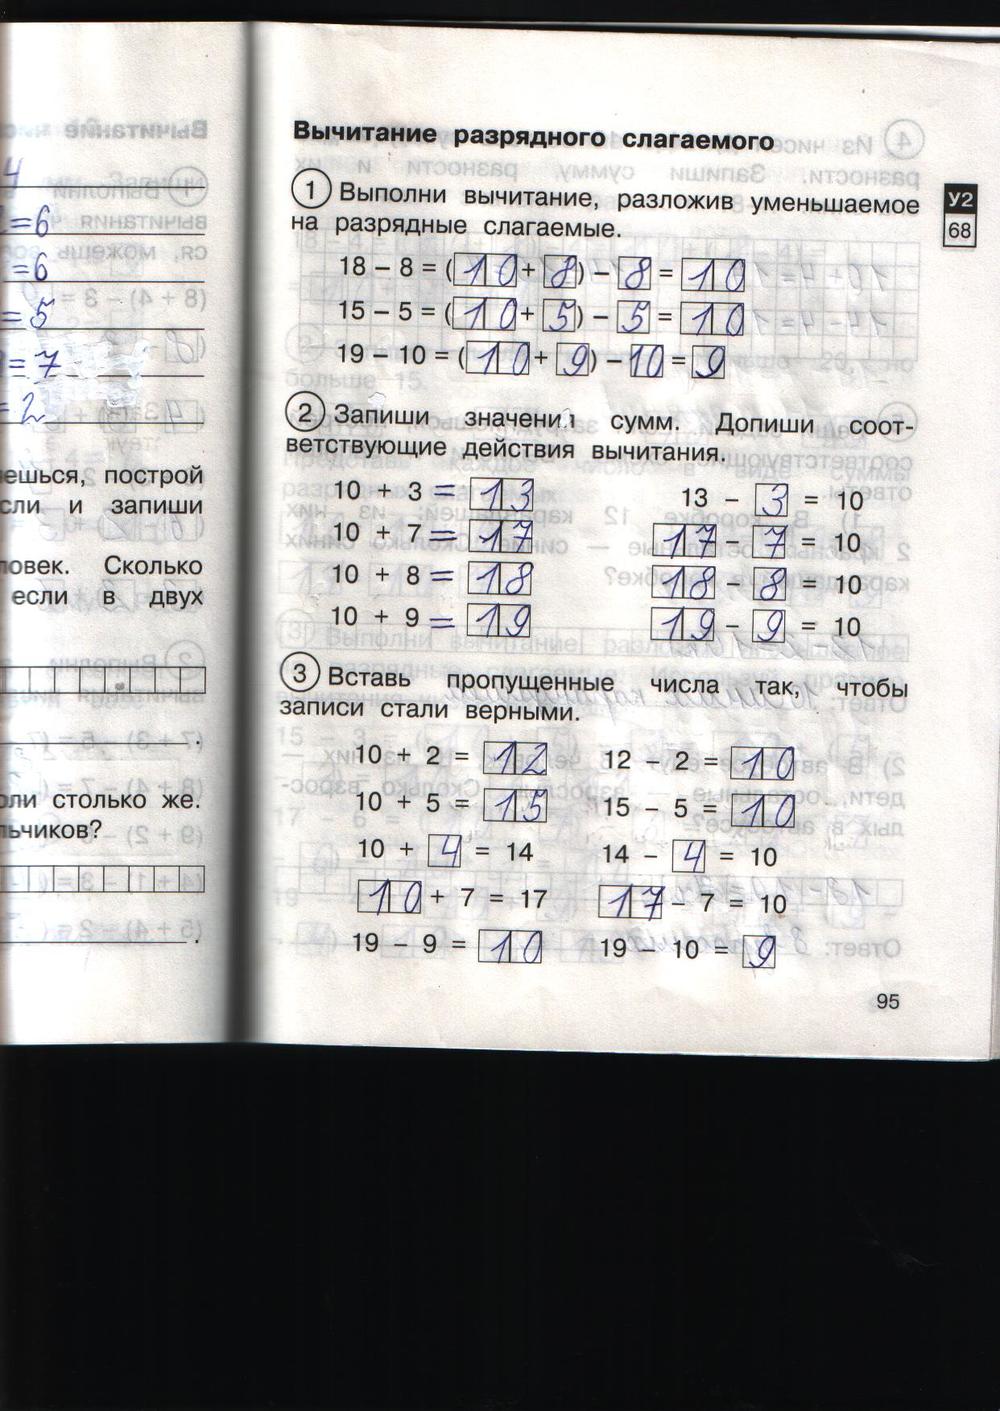 Вычитание разрядного слагаемого
1 Выполни вычитание, разложив уменьшаемое
на разрядные слагаемые.
У2
68
18 - 8 = (10 + 8) - 8 = 10
15 - 5 = (10 + 5) - 5 = 10
19 - 10 = (10 + 9) - 10 = 9
2 Запиши значения сумм. Допиши соот-
ветствующие действия вычитания.
10 + 3 = 13 13 - 3 = 10
10 + 7 = 17 17 - 7 = 10
10 + 8 = 18 18 - 8 = 10
10 + 9 = 19 19 - 9 = 10
3 Вставь пропущенные числа так, чтобы
записи стали верными.
10 + 2 = 12 12 - 2 = 10
10 + 5 = 15 15 - 5 = 10
10 + 4 = 14 14 - 4 = 10
10 + 7 = 17 17 - 7 = 10
19 - 9 = 10 19 - 10 = 9
95
4
=6
=6
=5
=7
=2
построй
и запиши
Сколько
если в двух
столько же.